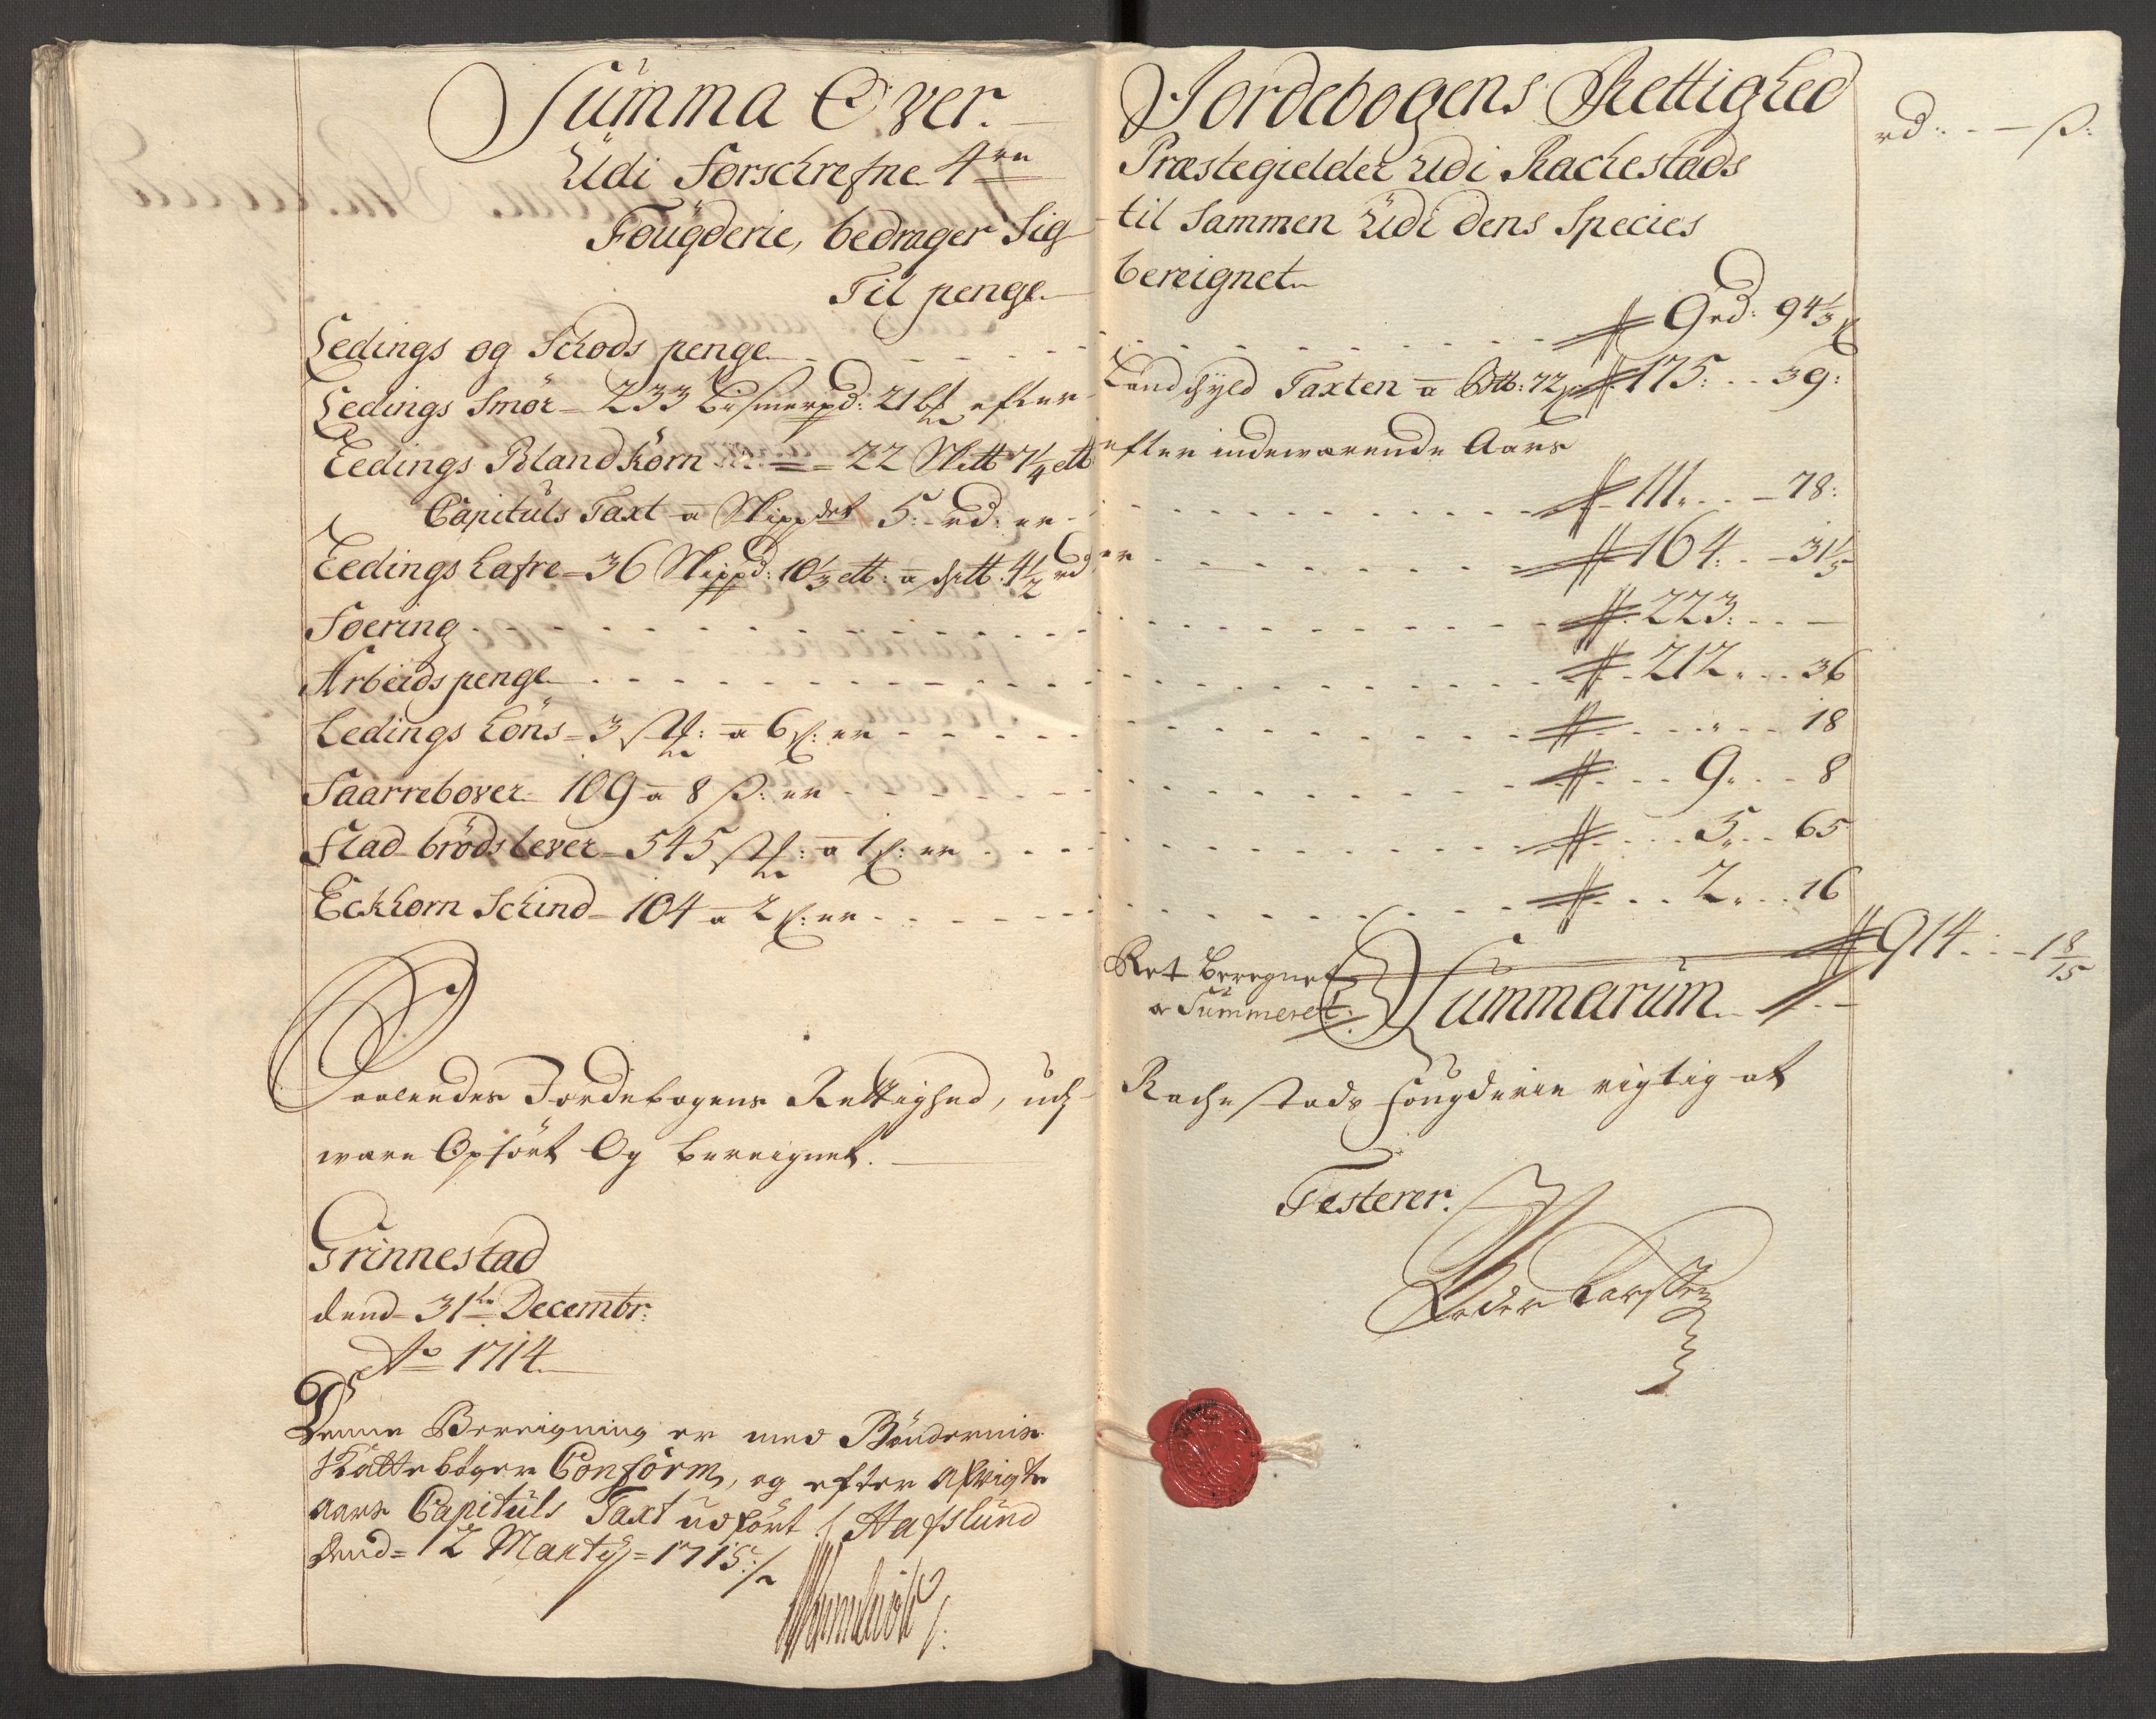 Summa Over Jordebogens Rettighed
rd: - - ß:
Udi Forschrefne 4re Præstegielder udi Rachestads
Fougderie, bedrager Sig til Sammen Udi dens Species
Til penge bereignet
Ledings og Schods penge 9 rd: 94 1/3 ß
Ledings Smör 233 Bismerpd: 21 efter Landschyld Taxten a 72 ß 175: 39:
Ledings Bland korn 22 7 1/4 efter indeværende Aars
Capituls Taxt a Skippdet 5 rd: er 111. 78:
Ledings hafre 36 Skippd: 10 1/3 a 4 1/2 rd er 164: 31 1/5
Foering 223: -
Arbeids penge 212. 36
Ledings höns 3 stk: a 6 ß: er 18
Saarrebover 109 a 8 ß: er 9. 8
Flad brödslever 545 stk: a 1 ß: er 5. 65
Eckhorn Schind 104 a 2 ß: er 2. 16
Ret beregnet
a Summeret: Summarum 914 1 8/15
Saaledes Jordebogens Rettighed, udj Rachestads Fougderie rigtig at
were Opfört Og bereignet.
Testerer.
Grinnestad
dend 31te Decembr:
Ao 1714
Peder Larssen
Denne Bereigning er med Böndernis
Skattebøger Conform, og efter afvigte
aars Capituls Taxt udfört. Hafslund
dend= 12 Marty= 1715